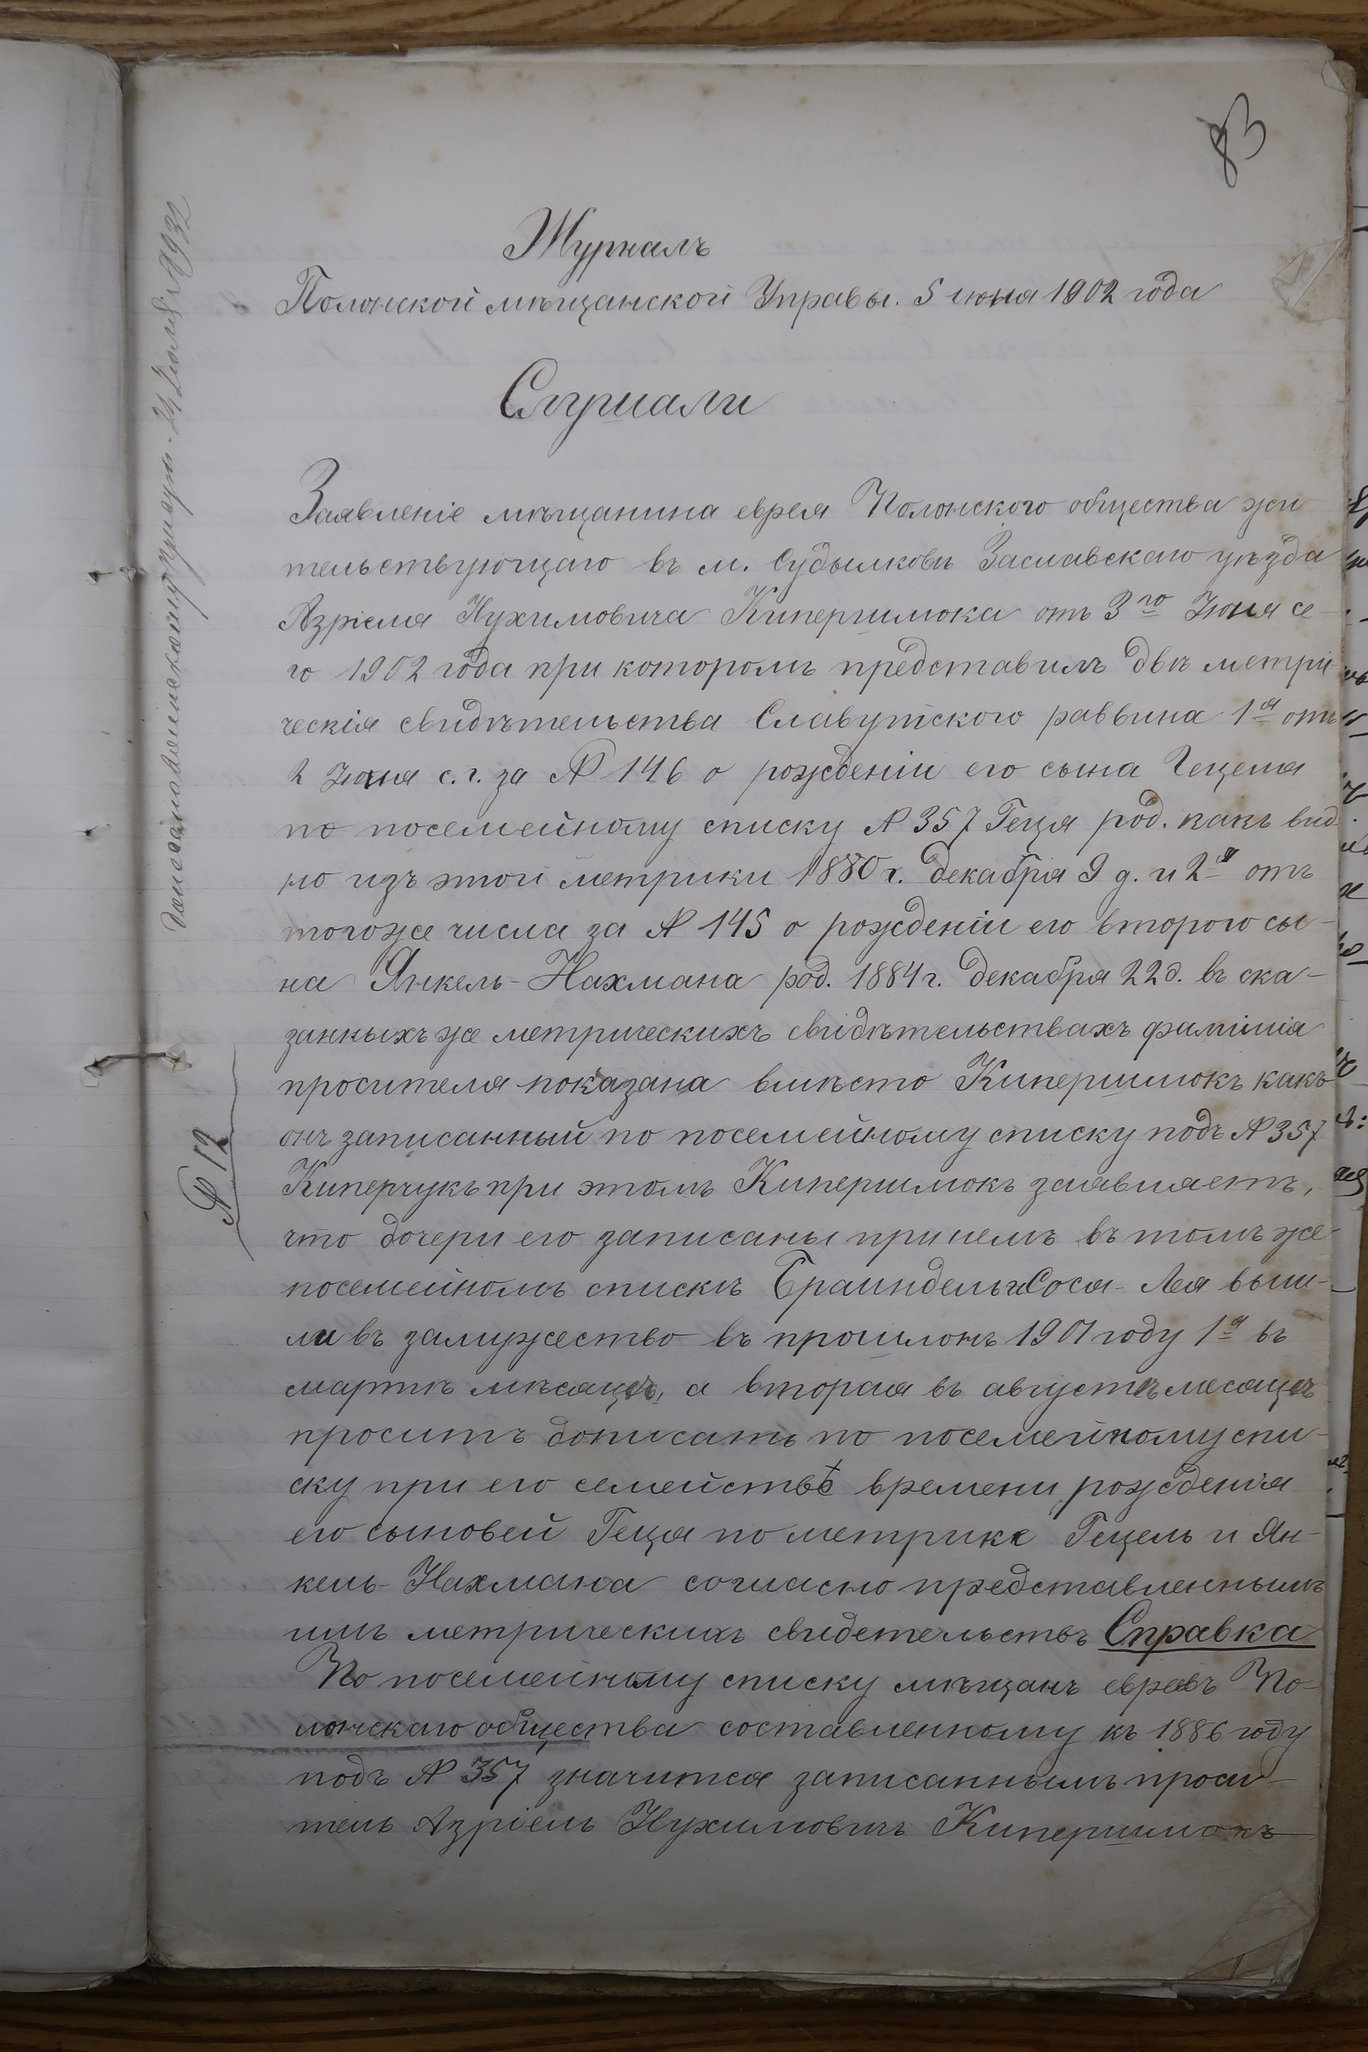 83
Журналъ
Полонской мѣщанской Управы. 5 июня 1902 года
Слушали
Заявленіе мѣщанина еврея Полонского общества жи
тельствующаго въ м. Судылковѣ Заславскаго уѣзда
Азріеля Нухимовича Кипершмока отъ 3го Іюня се-
го 1902 года при которомъ представилъ двѣ метри
ческія свидѣтельства Славутского раввина 1я отъ
2 Іюня с.г. за № 146 о рожденіи его сына Гецеля
по посемейному списку № 357 Геця род. какъ вид
но изъ этой метрики 1880 г. декабря 9 д. и 2я отъ
тогоже числа за № 145 о рожденіи его второго сы-
на Янкель-Нахмана род. 1884 г. декабря 22 д. въ ска-
занныхъ же метрическихъ свидѣтельствахъ фимилія
просителя показана вмѣсто Кипершмокъ какъ
онъ записанный по посемейному списку подъ № 357
Киперчукъ при этомъ Кипершмокъ заявляетъ,
что дочери его записаны при немъ въ томъ же
посемейномъ спискѣ Браиндель и Сося-Лея выш-
ли въ замужество въ прошломъ 1901 году 1я въ
мартѣ мѣсяцѣ, а вторая въ августѣ месяцѣ
проситъ дописать по посемейному спи-
ску при его семействѣ времени рожденія
его сыновей Геця по метрике Гецель и Ян-
кель-Нахмана согласно представленнымъ
имъ метрическихъ свидетельствъ Справка
По посемейному списку мѣщанъ евреевъ По-
лонскаго общества составленному къ 1886 году
подъ № 357 значится записаннымъ проси-
тель Азріель Нухимовичъ Кипершмокъ
№ 12